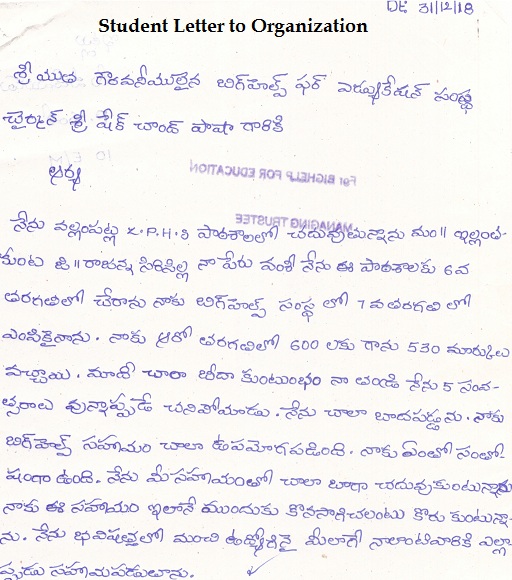 DE 31/12/18
Student Letter to Organization
శ్రీయుత గౌరవనీయులైన బిగ్‌హెల్ప్ ఫర్ ఎడ్యుకేషన్ సంస్థ
చైర్మన్ శ్రీ షేక్ చాంద్ పాషా గారికి
ఆర్య
For BIGHELP FOR EDUCATION
MANAGING TRUSTEE
నేను వల్లంపట్ల Z.P.H.S పాఠశాలలో చదువుతున్నాను మం॥ ఇల్లంత-
కుంట జి॥ రాజన్న సిరిసిల్ల నా పేరు వంశీ నేను ఈ పాఠశాలకు 6వ
తరగతిలో చేరాను నాకు బిగ్‌హెల్ప్ సంస్థ లో 7వ తరగతి లో
ఎంపికైనాను. నాకు ఆరో తరగతిలో 600 లకు గాను 530 మార్కులు
వచ్చాయి. మాది చారా బీదా కుంటుంభం నా తండ్రి నేను 5 సంవ-
త్సరాలు వున్నాప్పుడే చనిపోయాడు. నేను చాలా బాదపడ్డను. నాకు
బిగ్‌హెల్ప్ సహాయం చాలా ఉపమోగపడింది. నాకు ఏంతో సంతో-
షంగా ఉంది. నేను మీసహాయంతో చాలా బాగా చదువుకుంటున్నారు
నాకు ఈ సహాయం ఇలానే ముందుకు కొనసాగిచలంటు కోరు కుంటున్నా-
ను. నేను భవిషత్తులో మంచి ఉద్యోగినై మీలాగే నాలాంటివారికి ఎల్లా-
ప్పుడు సహాయపడుతాను.